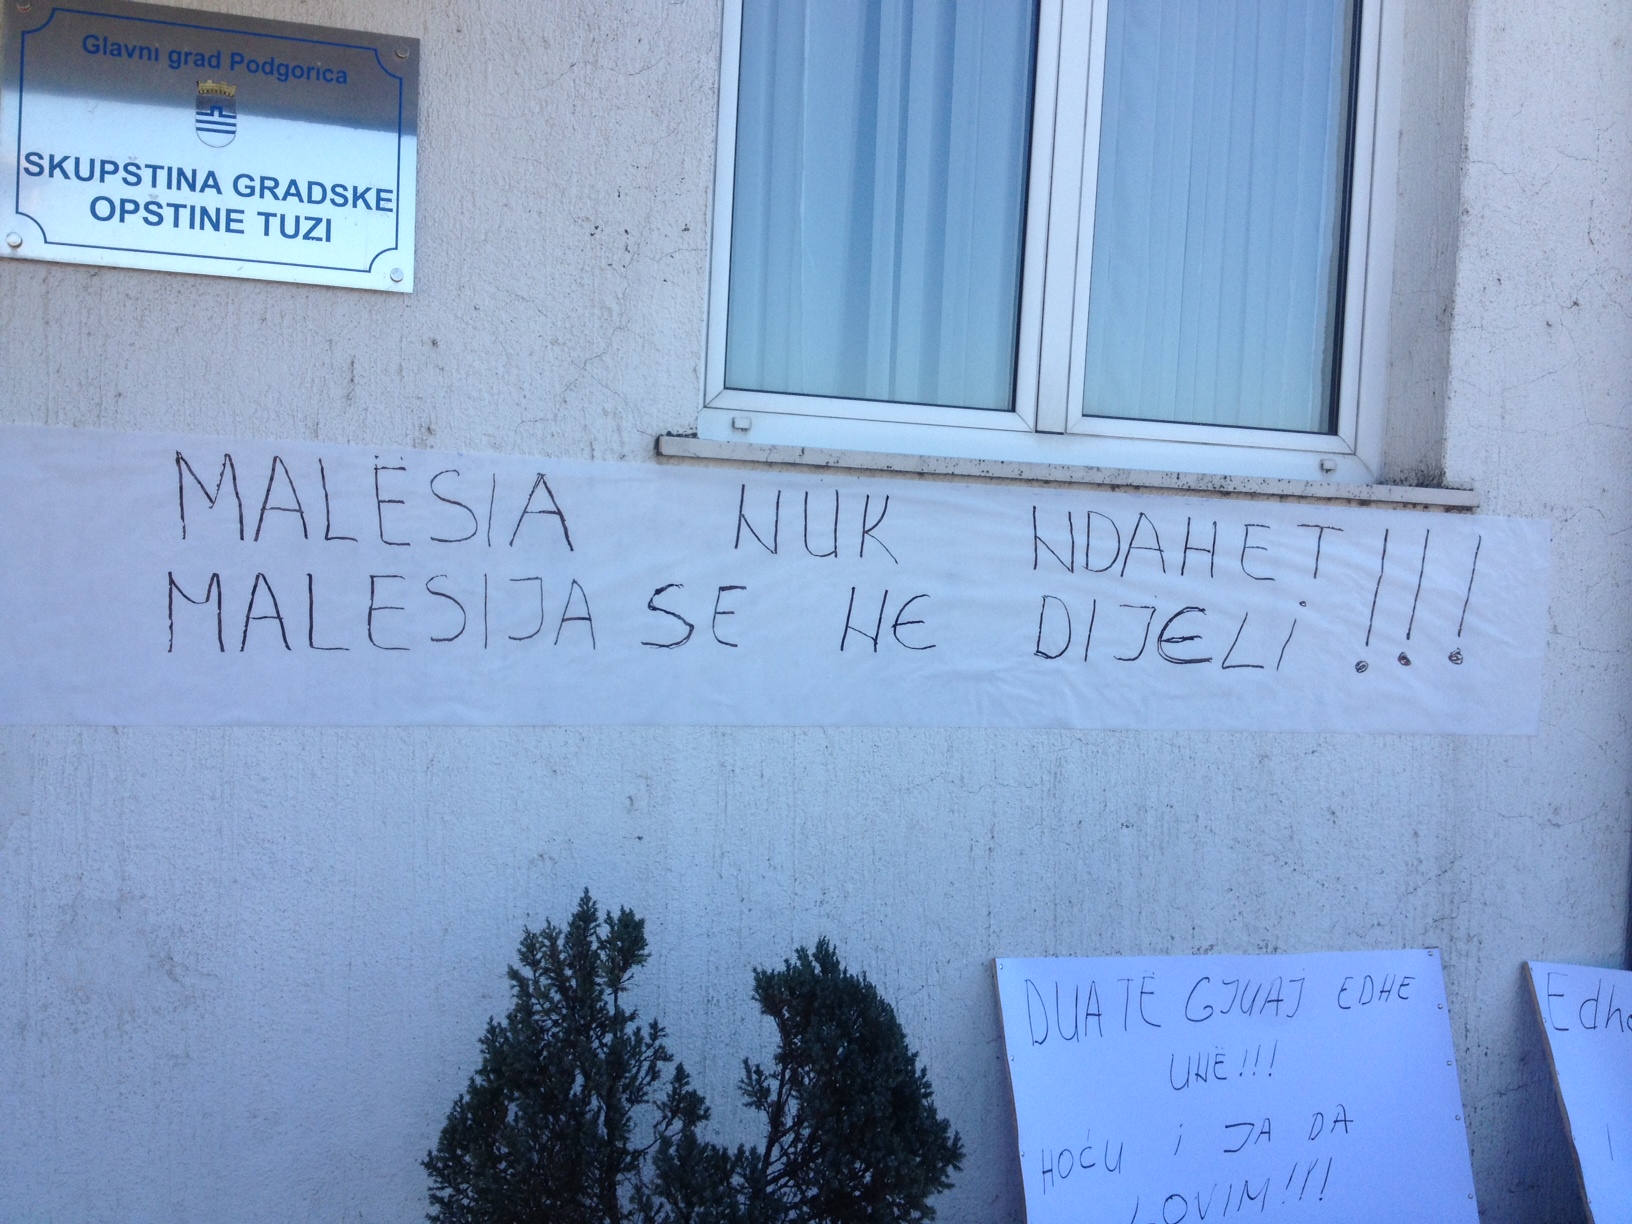 Glavni grad Podgorica
SKUPŠTINA GRADSKE
OPŠTINE TUZI
MALËSIA NUK NDAHET!!!
MALESIJA SE NE DIJELI!!!
DUA TË GJUAJ EDHE
UNË!!!
HOĆU i JA DA
LOVIM!!!